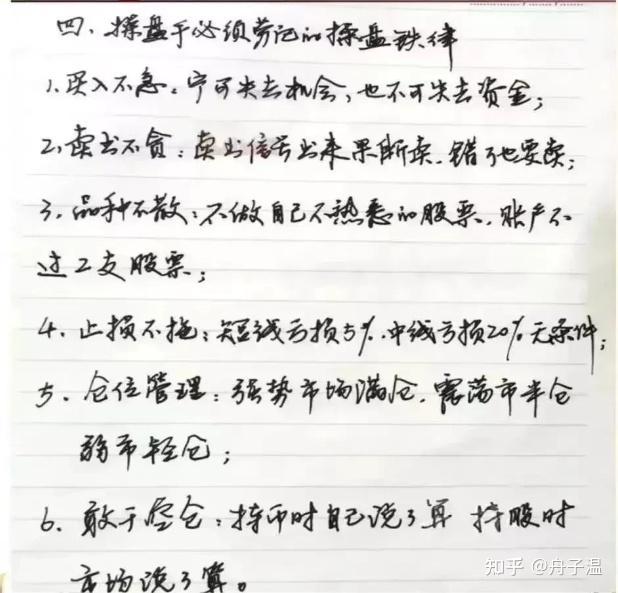 四、操盘手必须劳记的操盘铁律
1、买入不急：宁可失去机会，也不可失去资金；
2、卖出不贪：卖出信号出来果断卖、错了也要卖；
3、品种不散：不做自己不熟悉的股票、账户不
过2支股票；
4、止损不拖：短线亏损5%、中线亏损20%无条件；
5、仓位管理：强势市场满仓、震荡市半仓
弱市轻仓；
6、敢于空仓：持币时自己说了算 持股时
市场说了算。
知乎 @舟子温